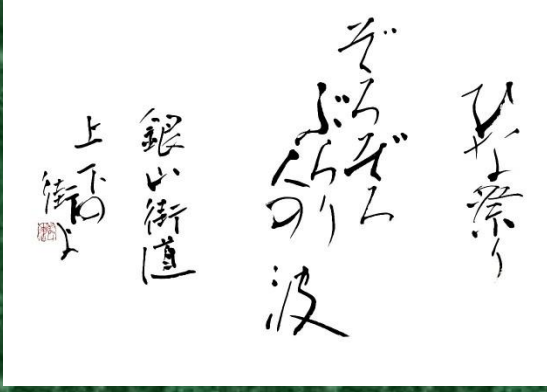 ひな祭り
ぞろぞろ
ぶらり
人の波
銀山街道
上下の
街よ